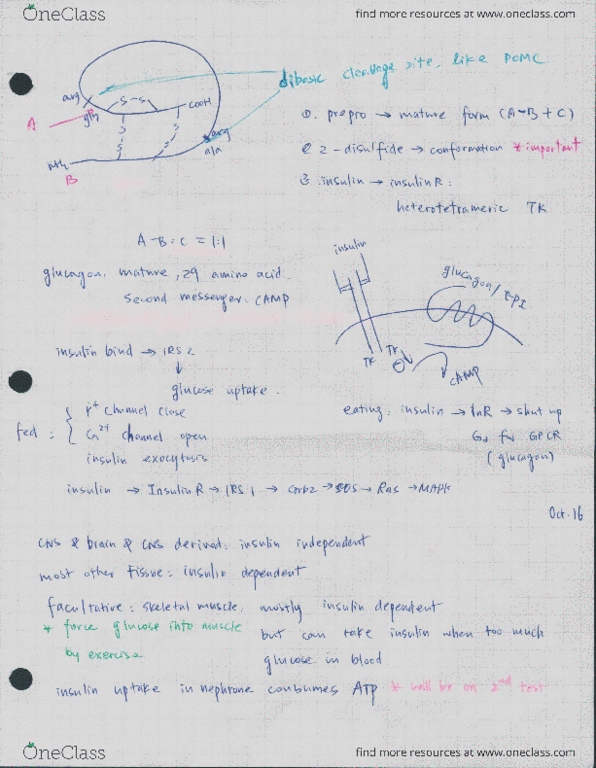 OneClass
find more resources at www.oneclass.com
dibasic cleavage site, like POMC
arg
S-S
COOH
A
gly
S S
S S
arg
ala
NH2
B
①. prepro → mature form (A-B + C)
② 2-disulfide → conformation * important
③ insulin → insulin R:
heterotetrameric TK
A-B:C = 1:1
glucagon: mature, 29 amino acid.
second messenger: cAMP
insulin
glucagon/EPI
TK TK
cAMP
insulin bind → IRS2
↓
glucose uptake.
fed:
K+ channel close
Ca2+ channel open
insulin exocytosis
eating: insulin → InR → shut up
GPCR
(glucagon)
insulin → Insulin R → IRS1 → Grb2 → SOS → Ras → MAPK
Oct. 16
CNS & brain & CNS derived: insulin independent
most other tissue: insulin dependent
facultative: skeletal muscle, mostly insulin dependent
* force glucose into muscle
by exercise
but can take insulin when too much
glucose in blood
insulin uptake in nephrone conbumes ATP * will be on 2nd test
OneClass
find more resources at www.oneclass.com